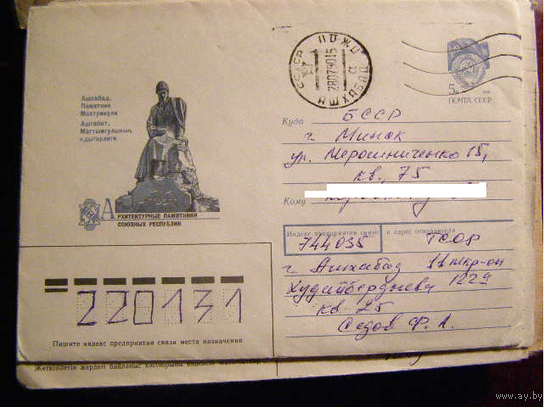 СССР ПОЖД
280790 15
АШХАБАД
5
ПОЧТА СССР
Ашхабад.
Памятник
Махтумкули
Ашгабат.
Магтымгулының
ядыгәрлиги
АРХИТЕКТУРНЫЕ ПАМЯТНИКИ
СОЮЗНЫХ РЕСПУБЛИК
Куда БССР
г. Минск
ул. Мирошниченко 15,
кв. 75
Кому
Индекс предприятия связи и адрес отправителя
744035 ТССР
г. Ашхабад 11 мкр-он
Худайбердыева 122а
кв 25
Седов Ф. А.
220131
Пишите индекс предприятия связи места назначения
www.ay.by